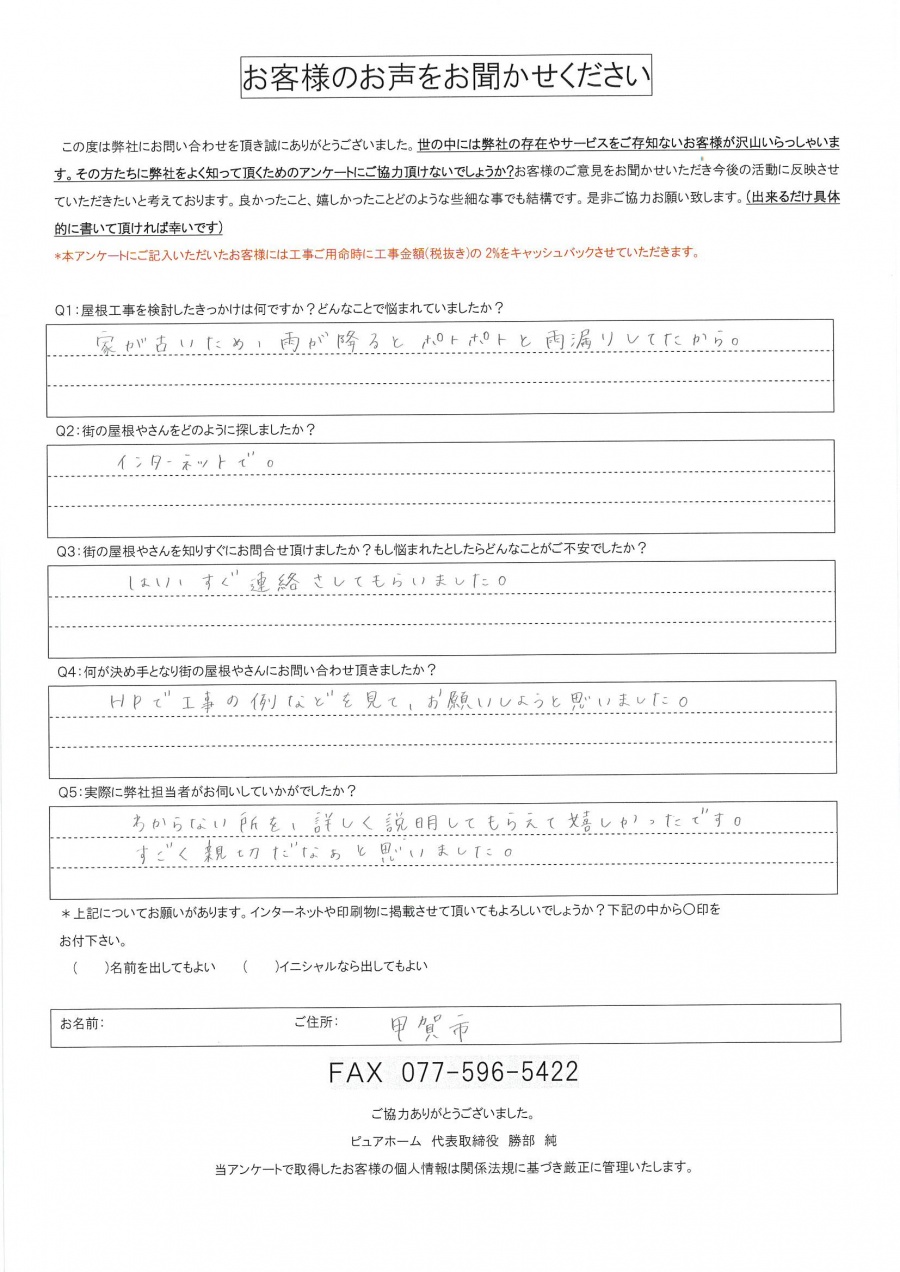 お客様のお声をお聞かせください
この度は弊社にお問い合わせを頂き誠にありがとうございました。世の中には弊社の存在やサービスをご存知ないお客様が沢山いらっしゃいま
す。その方たちに弊社をよく知って頂くためのアンケートにご協力頂けないでしょうか?お客様のご意見をお聞かせいただき今後の活動に反映させ
ていただきたいと考えております。良かったこと、嬉しかったことどのような些細な事でも結構です。是非ご協力お願い致します。(出来るだけ具体
的に書いて頂ければ幸いです)
*本アンケートにご記入いただいたお客様には工事ご用命時に工事金額(税抜き)の 2%をキャッシュバックさせていただきます。
Q1:屋根工事を検討したきっかけは何ですか?どんなことで悩まれていましたか?
家が古いため、雨が降るとポトポトと雨漏りしてたから。
Q2:街の屋根やさんをどのように探しましたか?
インターネットで。
Q3:街の屋根やさんを知りすぐにお問合せ頂けましたか?もし悩まれたとしたらどんなことがご不安でしたか?
はい、すぐ連絡さしてもらいました。
Q4:何が決め手となり街の屋根やさんにお問い合わせ頂きましたか?
HPで工事の例などを見て、お願いしようと思いました。
Q5:実際に弊社担当者がお伺いしていかがでしたか?
わからない所を、詳しく説明してもらえて嬉しかったです。
すごく親切だなぁと思いました。
*上記についてお願いがあります。インターネットや印刷物に掲載させて頂いてもよろしいでしょうか?下記の中から○印を
お付下さい。
( )名前を出してもよい ( )イニシャルなら出してもよい
お名前: ご住所: 甲賀市
FAX 077-596-5422
ご協力ありがとうございました。
ピュアホーム 代表取締役 勝部 純
当アンケートで取得したお客様の個人情報は関係法規に基づき厳正に管理いたします。